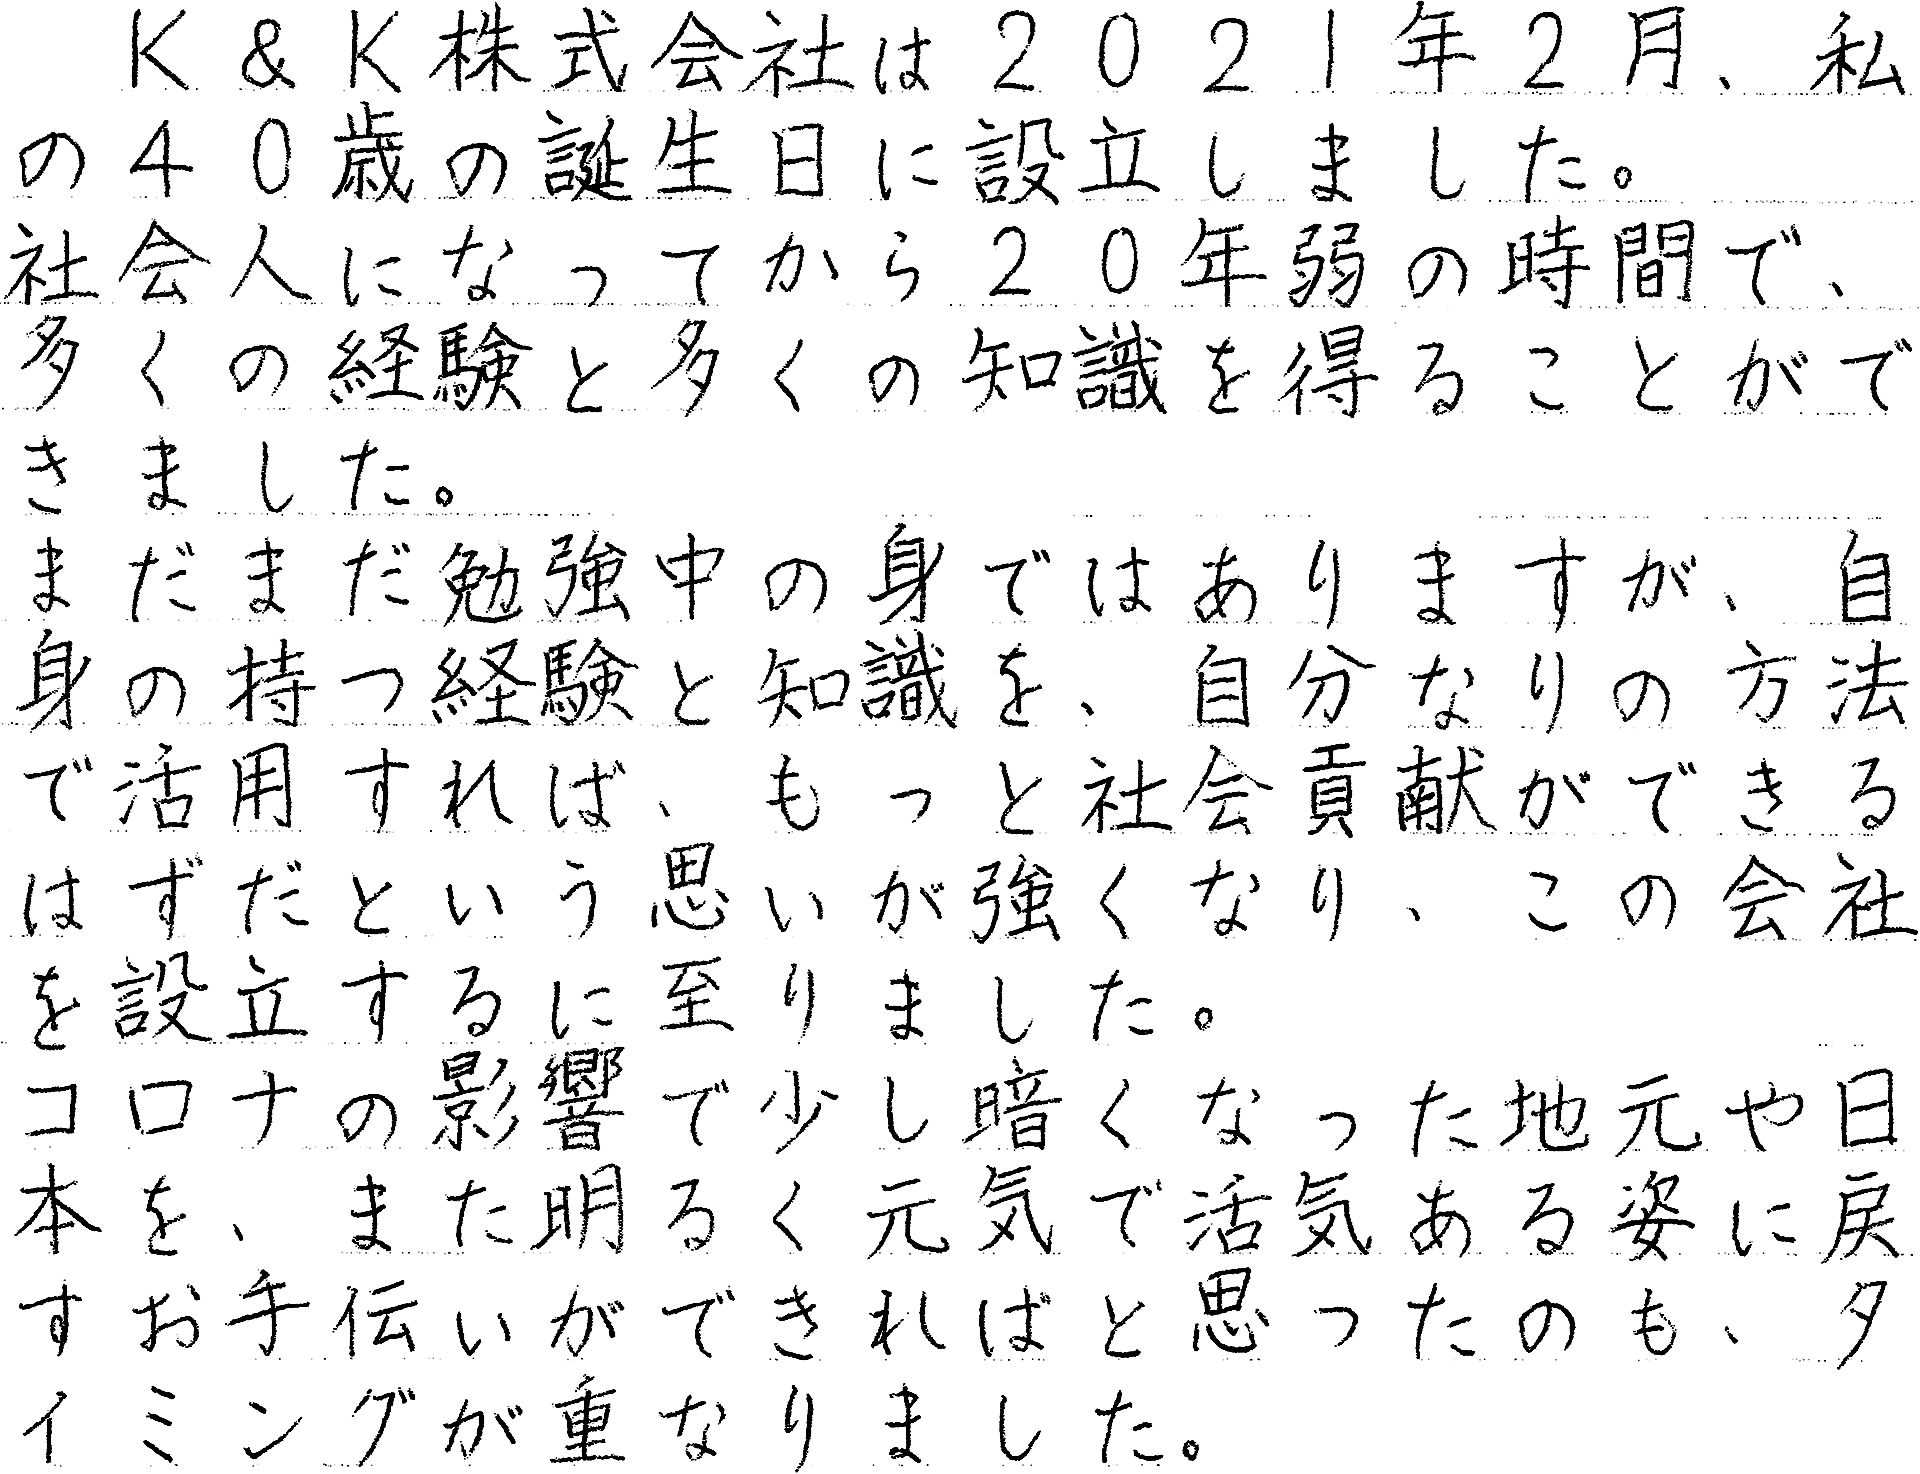 K&K株式会社は2021年2月、私
の40歳の誕生日に設立しました。
社会人になってから20年弱の時間で、
多くの経験と多くの知識を得ることがで
きました。
まだまだ勉強中の身ではありますが、自
身の持つ経験と知識を、自分なりの方法
で活用すれば、もっと社会貢献ができる
はずだという思いが強くなり、この会社
を設立するに至りました。
コロナの影響で少し暗くなった地元や日
本を、また明るく元気で活気ある姿に戻
すお手伝いができればと思ったのも、タ
イミングが重なりました。